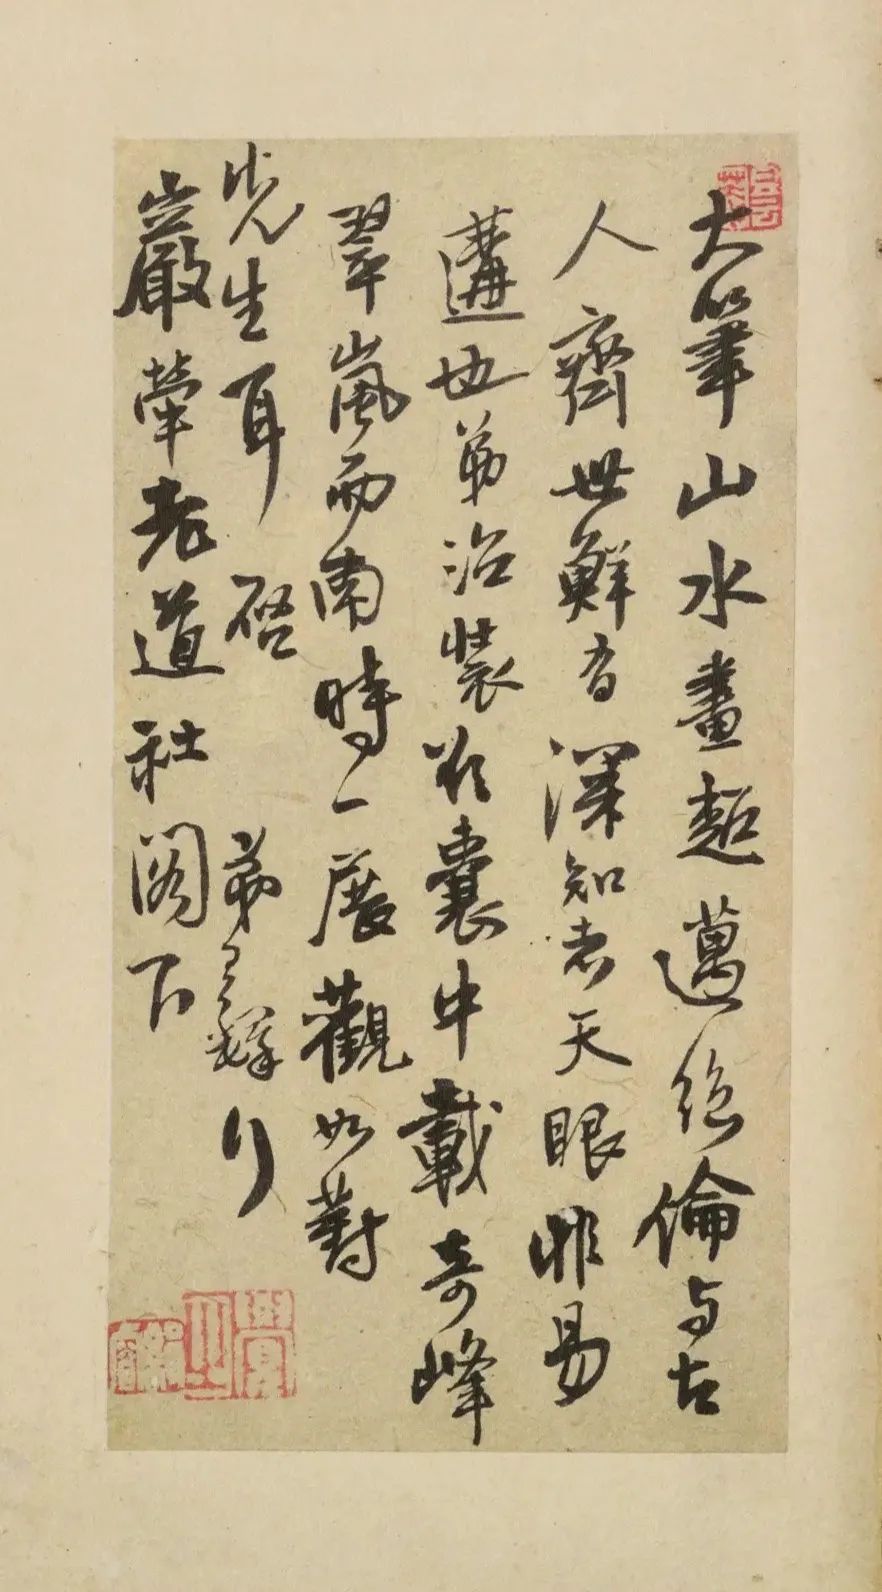 大筆山水畫超邁絕倫与古
人齊世鮮有深知者天眼非易
遘也弟治裝於囊中載奇峰
翠嵐而南時一展觀如對
先生耳 啓 弟王鐸
巖犖老道社閣下